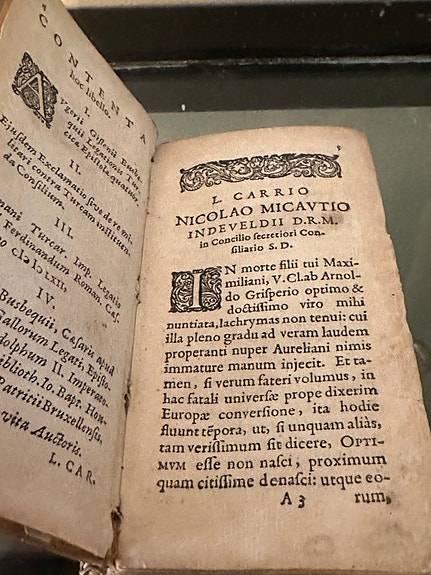 CONTENTA
hoc libello.
I.
Augerii Gislenii Busbe-
quii Legationis Tur-
cicæ Epistolæ quatuor.
II.
Ejusdem Exclamatio sive de re mi-
litari contra Turcam instituen-
da Consilium.
III.
mani Turcar. Imp. Legatio
Ferdinandum Roman. Cæs.
IV.
Busbequii, Cæsaris apud
Gallorum Legati, Episto-
dolphum II. Imperato-
Biblioth. Io. Bapt. Hou-
Patricii Bruxellensis.
vita Auctoris.
L. CAR.
L. CARRIO
NICOLAO MICAVTIO
INDEVELDII D.R.M.
in Concilio secretiori Con-
siliario S. D.
IN morte filii tui Maxi-
miliani, V.Cl.ab Arnol-
do Grisperio optimo &
doctissimo viro mihi
nuntiata, lachrymas non tenui: cui
illa pleno gradu ad veram laudem
properanti nuper Aureliani nimis
immature manum injecit. Et ta-
men, si verum fateri volumus, in
hac fatali universæ prope dixerim
Europæ conversione, ita hodie
fluunt tẽpora, ut, si unquam aliàs,
tam verissimum sit dicere, OPTI-
MVM esse non nasci, proximum
quam citissime denasci: utque eo-
A 3 rum,